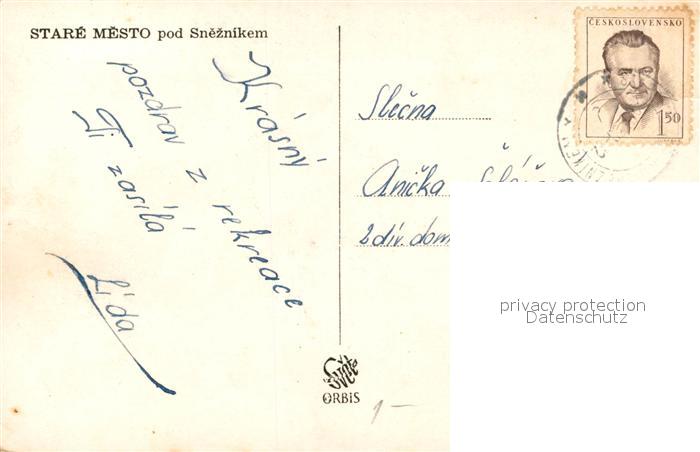 STARÉ MĚSTO pod Sněžníkem
Krásný
pozdrav z rekreace
Ti zasílá
Lída
ČESKOSLOVENSKO
1 50
Slečna
Anička
2 dív. dom
Svět
ORBIS
1 –
privacy protection
Datenschutz